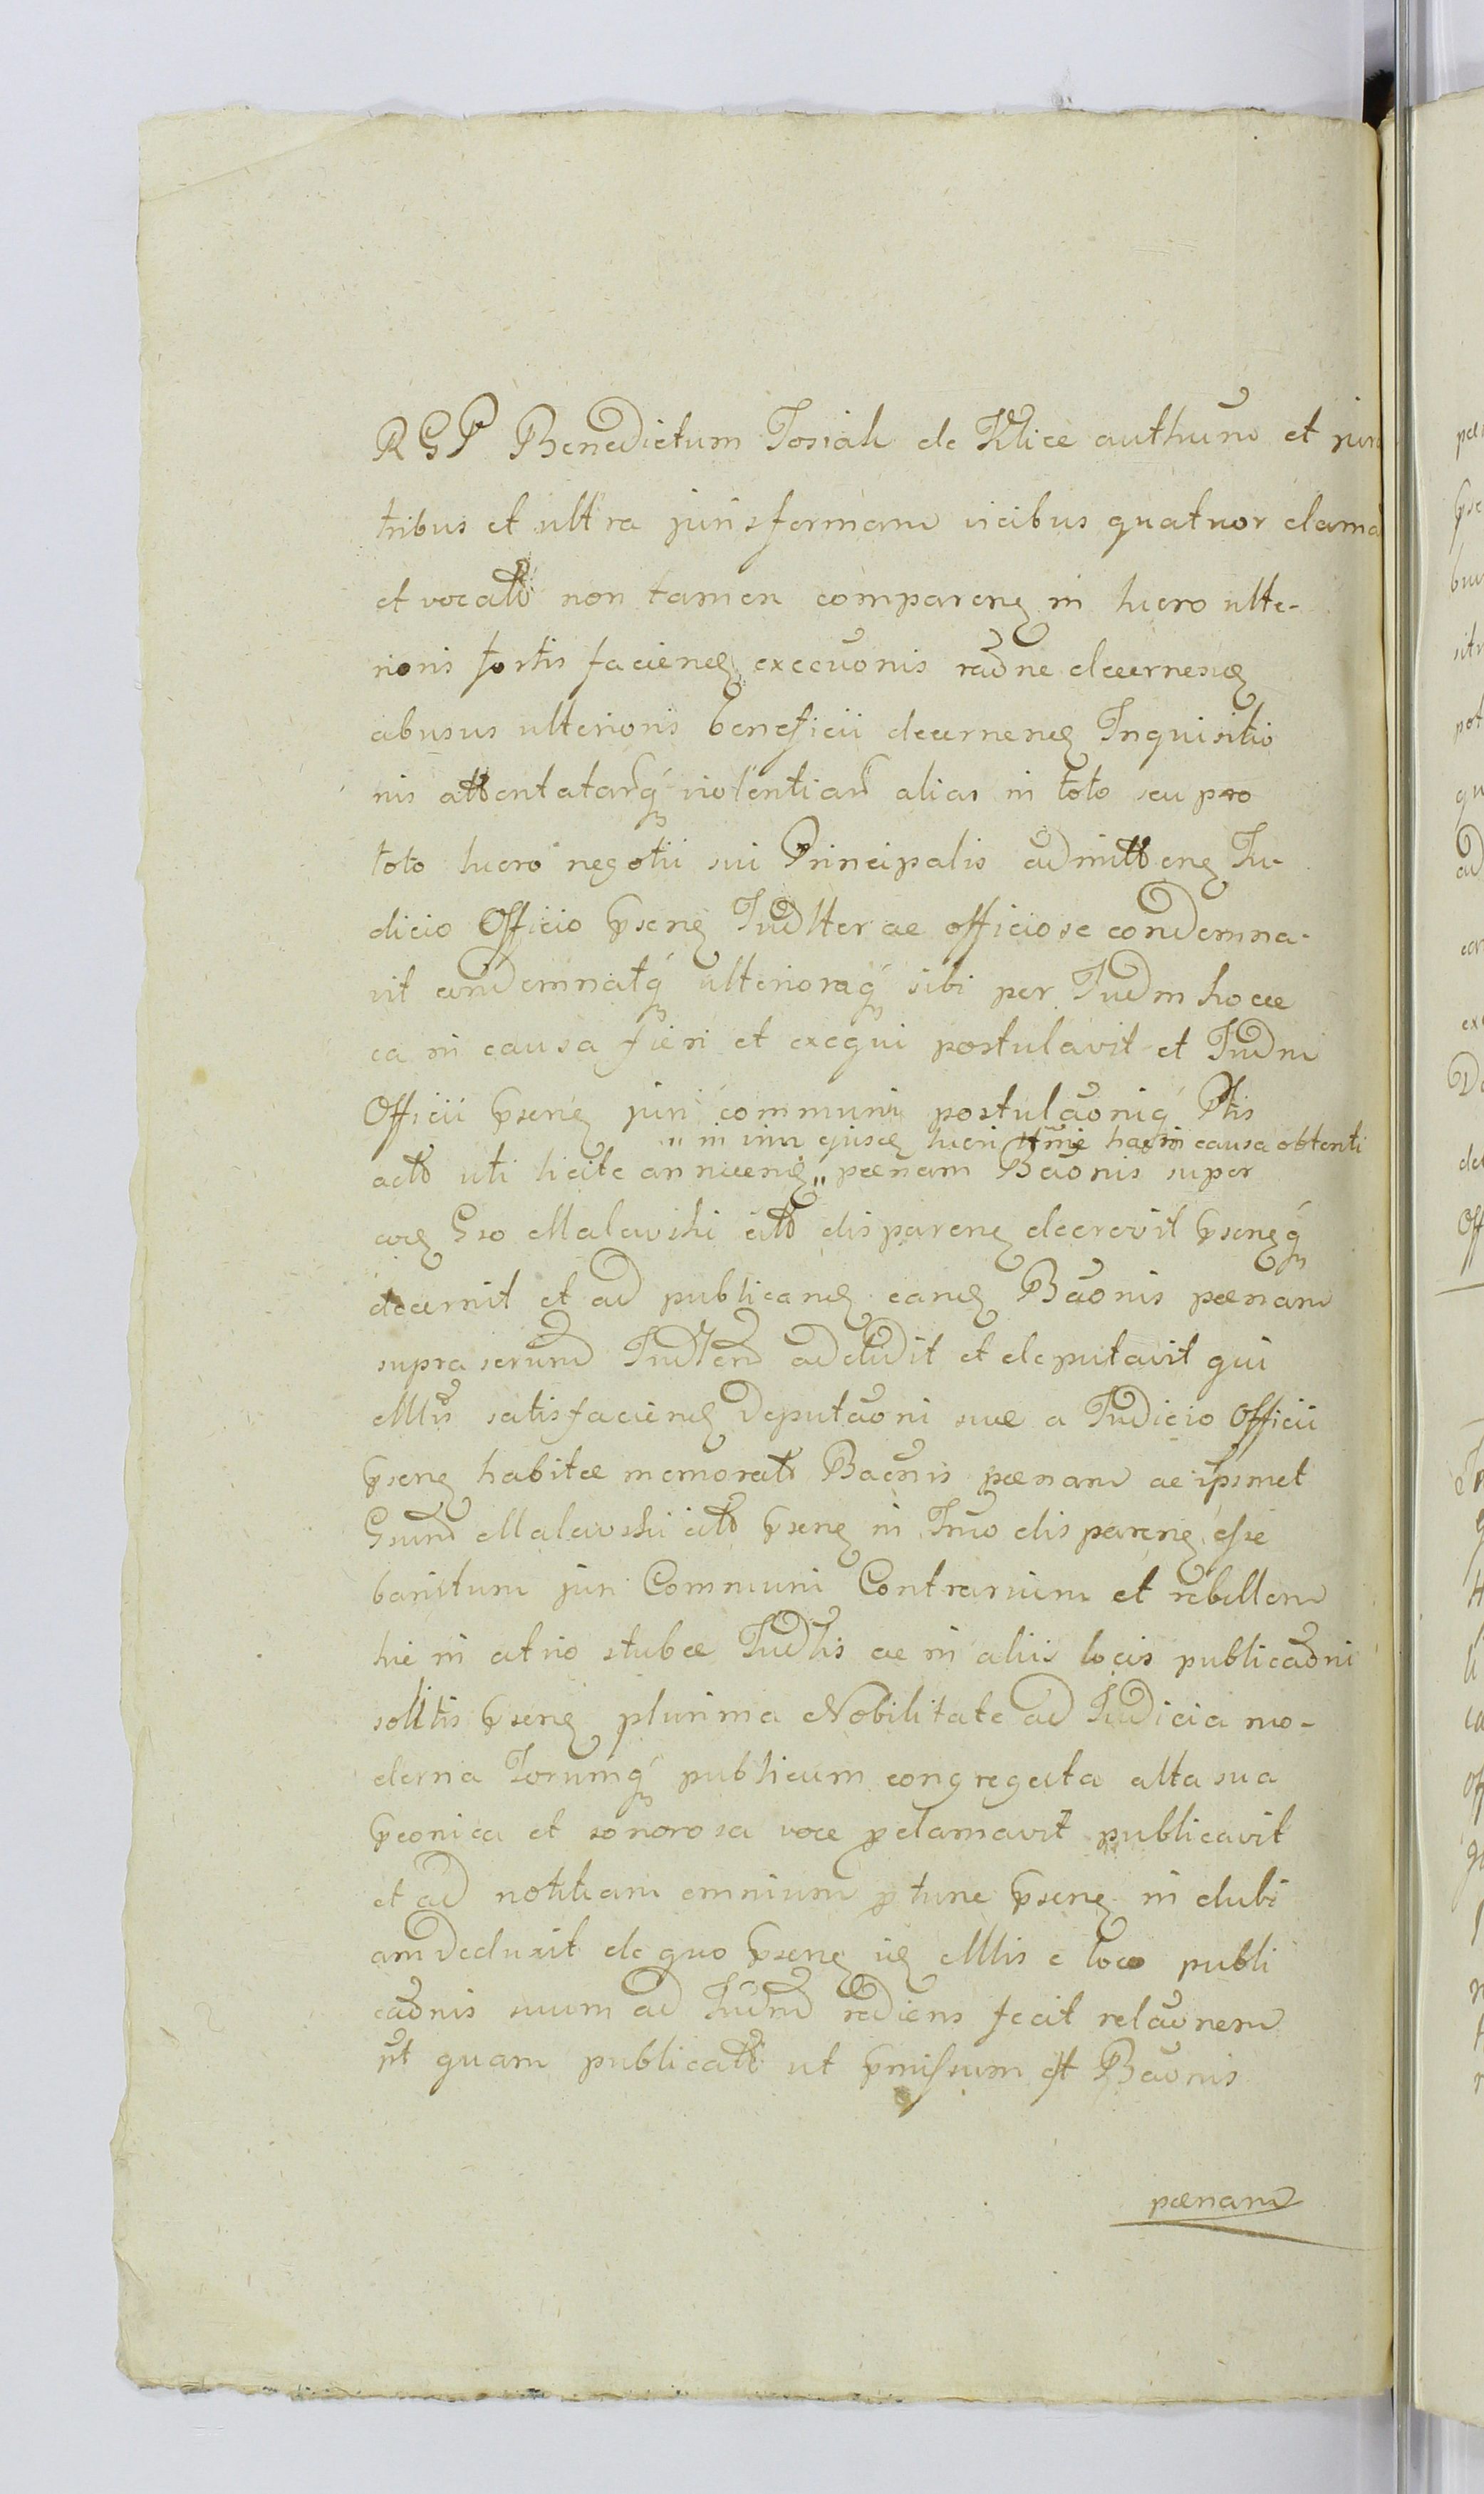 RGP Benedictum Josiak de Klice authum et jura
tribus et ultra juris formam vicibus quatuor clama
et vocatt non tamen comparenz in lucro ulte-
rioris fortis faciendz execuonis raone decernendz
abusus ulterioris beneficii decernendz Inquisitio
nis attentatarq violentiar alias in toto seu pro
toto lucro negotii sui Principalis admittenz Ju-
dicio Officio psenz Judlter ac officiose condemna-
vit condemnatq ulterioraq sibi per Judm hocce
ea in causa fieri et exequi postulavit et Judm
Officii psenz juri communi postulaoniq Ptis
" in vim ejusdz lucri ttmie hac in causa obtenti
actt uti licite annuendz " pænam Baonis super
eodz Gso Malawski citt disparenz decrevit psenzq
decernit et ad publicandz eandz Baonis pænam
supra scrum Judlem addidit et deputavit qui
Mlis satisfaciendz Deputaoni suæ a Judicio Officii
psenz habitæ memoratt Baonis pænam ac ipsmet
Gsum Malawski citt psenz in Tmo disparenz esse
banitum juri Communi Contrarium et rebellem
hic in atrio stubæ Judlis ac in aliis locis publicaoni
solitis psenz plurima Nobilitate ad Judicia mo-
derna Forumq publicum congregata alta sua
pconica et sonorosa voce pclamavit publicavit
et ad notitiam omnium p tunc psenz in dubi
am deduxit de quo psenz idz Mlis e loco publi
caonis suum ad Judm rediens fecit relaonem
pt quam publicatt ut pmissum est Baonis
pænam